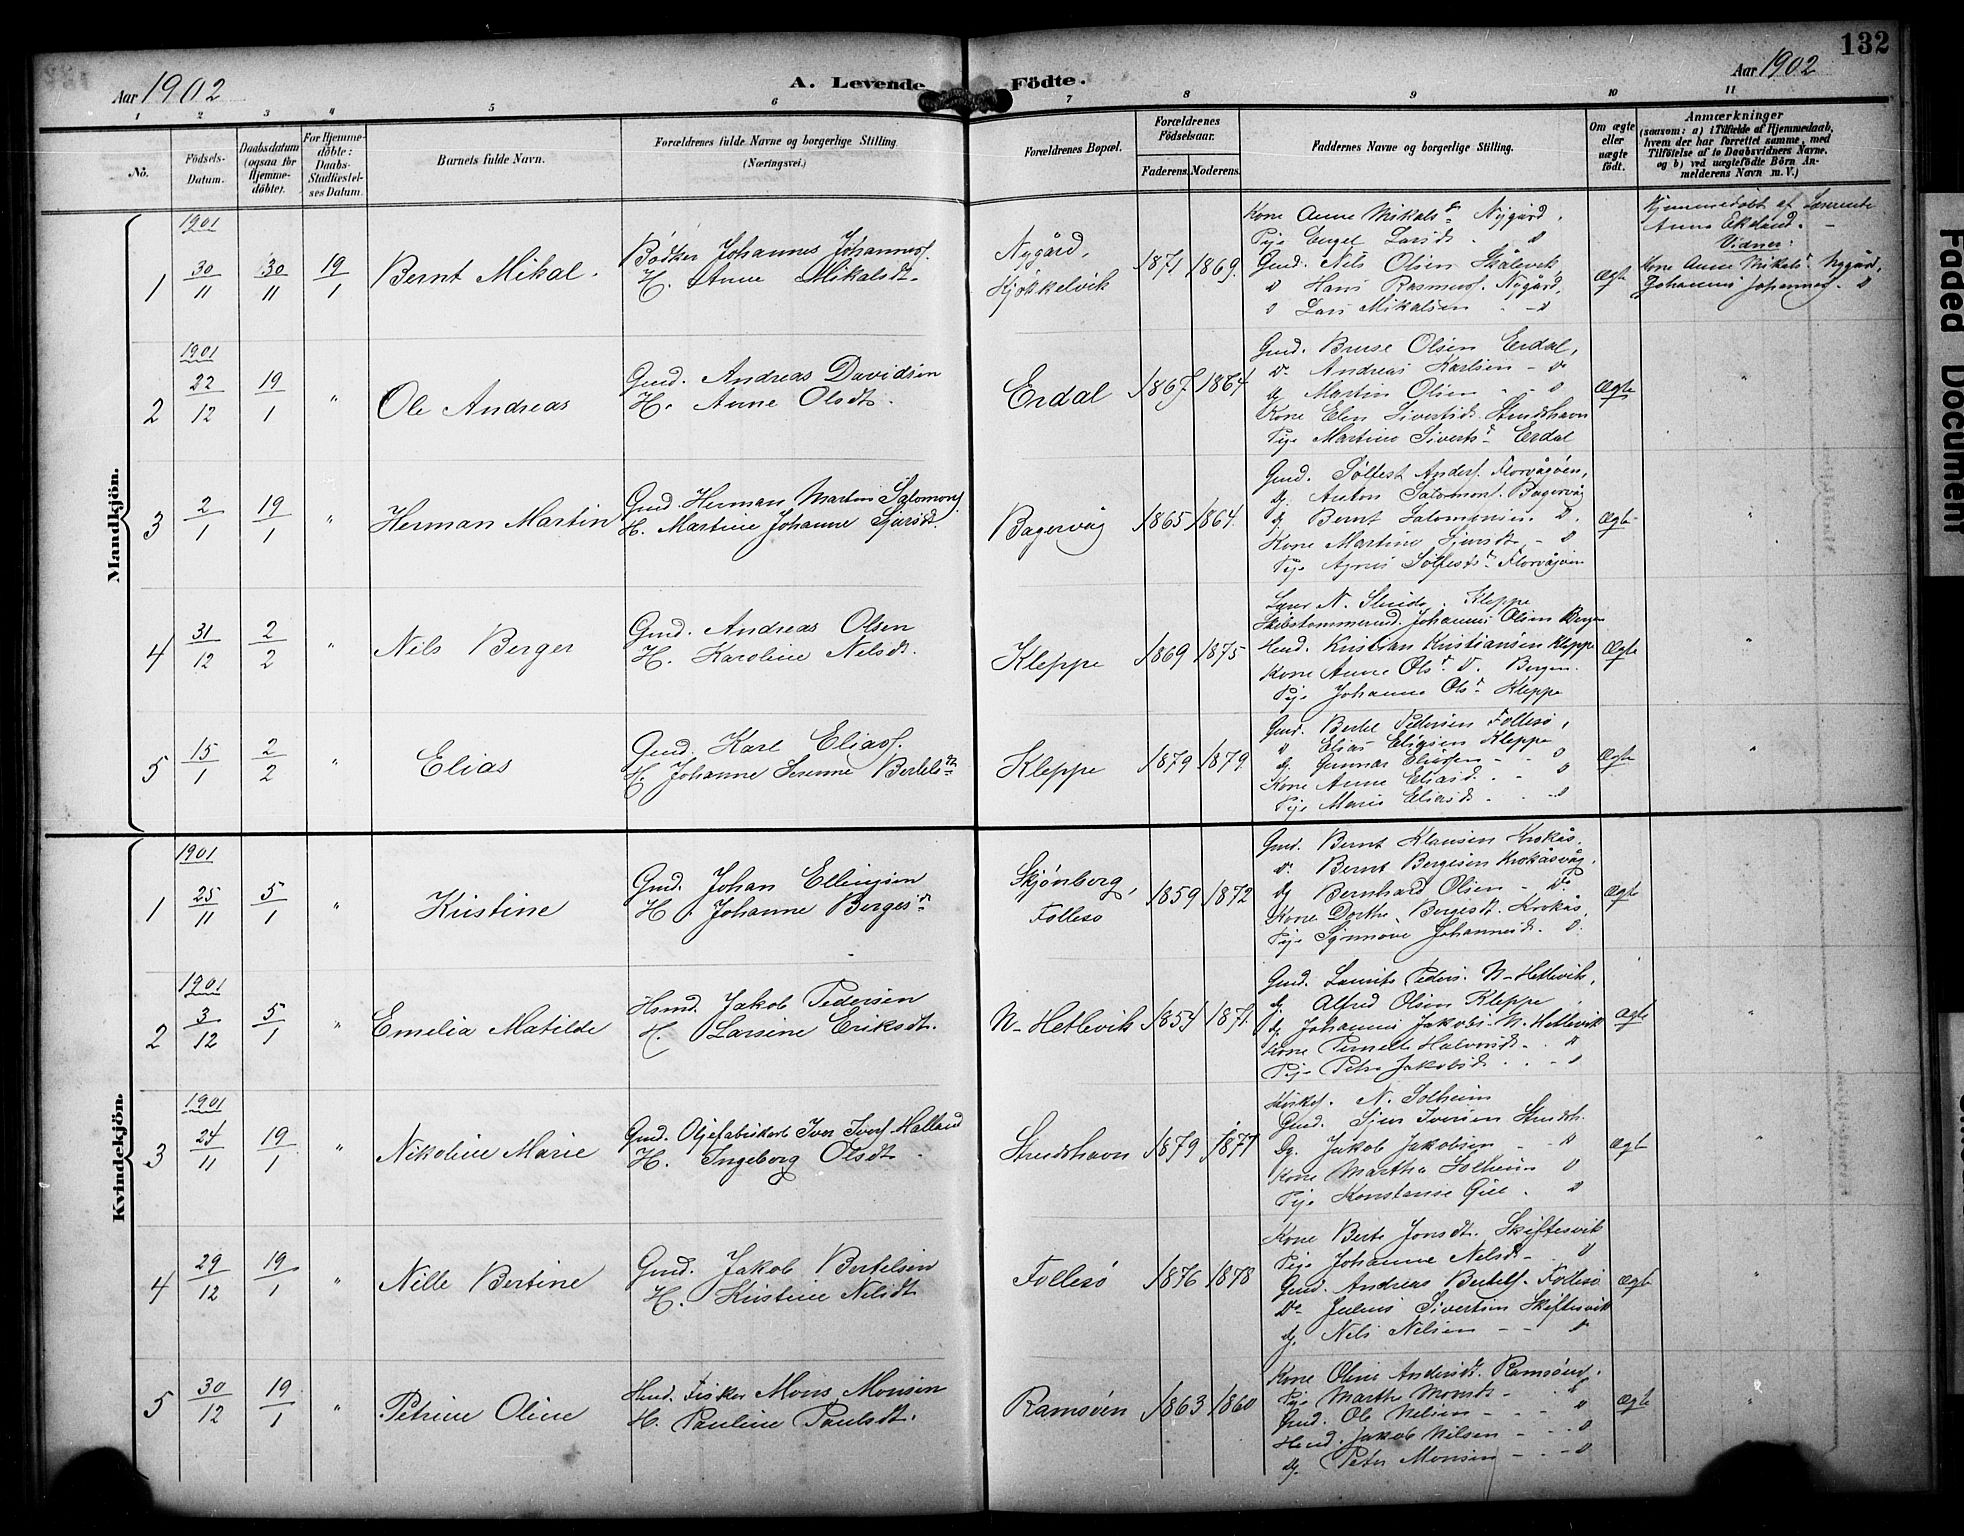 132
Aar 1902
A. Levende Fødte.
Aar 1902
1 2 3 4 5 6 7 8 9 10 11
No.
Födsels-Datum.
Daabsdatum (ogsaa for Hjemmedöbte).
For Hjemmedöbte: Daabs-Stadfæstelses Datum.
Barnets fulde Navn.
Forældrenes fulde Navne og borgerlige Stilling (Næringsvei).
Forældrenes Bopæl.
Forældrenes Födselsaar.
Faderens. Moderens.
Faddernes Navne og borgerlige Stilling.
Om ægte eller uægte födt.
Anmærkninger
(saasom: a) i Tilfælde af Hjemmedaab, hvem der har forrettet samme, med Tilföielse af to Daabsvidners Navne, og b) ved uægtefödte Börn Anmelderens Navn m. V.)
Mandkjön.
1901
1 30/11 30/11 19/1 Bernt Mikal.
Bødker Johannes Johannes.
H. Anne Mikalsdt.
Nygård, Kjøkkelvik
1871 1869.
Kone Anne Mikalsd Nygård.
Pije Engel Larsdt. D
Gmd. Nils Olsen Skålevik,
D Hans Rasmuss. Nygård,
D Lars Mikalsen - D
Ægte
Hjemmedøbt af Læerinde
Anna Ekeland.
Vidner:
Kone Anne Mikalsd. Nygård,
Johannes Johannes. D
1901
2 22/12 19/1 " Ole Andreas
Gmd. Andreas Davidsen
H. Anne Olsdt.
Erdal
1867. 1864
Gmd. Bruse Olsen Erdal,
Do Andreas Karlsen - D
Dg. Martin Olsen - D
Kone Elen Sivertsdt. Strudshavn
Pije Martine Siverts. Erdal
Ægte "
3 2/1 19/1 " Herman Martin
Gmd Herman Martin Salomons.
H. Martine Johanne Sjursdt.
Bagervåg
1865 1864.
Gmd. Sølfest Anders. Florvågøen,
Dg. Anton Salomons. Bagervåg
Dg. Bernt Salomonsen. D.
Kone Martine Sjursdt. - D
Pije Agnes Sølfestsd. Florvågøen
Ægte "
4 31/12 2/2 " Nils Berger
Gmd. Andreas Olsen
H. Karoline Nilsdt.
Kleppe
1869 1875
Lærer N. Kleppe
Skibstømmermd. Johannes Olsen Bergen
Hmd. Kristian Kristiansen Kleppe
Kone Anne Olsd. D. Bergen.
Pije Johanne Olsd. Kleppe
Ægte "
5 15/1 2/2 " Elias
Gmd. Karl Elias.
H. Johanne Serenne Bertelsdt.
Kleppe
1879 1879.
Gmd. Bertel Pedersen Follesø,
D Elias Eliasen Kleppe
Dg. Gunnar Eliasen - D
Kone Anne Eliasd. - D
Pije Marie Eliasdt. - D
Ægte "
Kvindekjön.
1901
1 25/11 5/1 " Kristine
Gmd. Johan Ellingsen
H. Johanne Bergesdt.
Skjønberg, Follesø
1859 1872
Gmd. Bernt Klausen Krokås.
Do. Bernt Bergesen Krokåsvåg.
Dg Bernhard Olsen - Do
Kone Dorthe Bergesdt. Krokås.
Pije Synnøve Johannesdt. D.
Ægte "
1901
2 3/12 5/1 " Emelia Matilde
Hsmd. Jakob Pedersen
H. Larsine Eriksdt.
N-Hetlevik
1854 1871.
Gmd. Laurits Peders. N-Hetlevik,
Dg. Alfred Olsen Kleppe
Dg. Johannes Jakobs. N. Hetlevik
Kone Pernille Halvorsdt - D
Pije Petra Jakobsdt. - D
Ægte "
1901
3 24/11 19/1 " Nikoline Marie
Gmd. Oljefabrikarb. Iver Ivers. Halland
H. Ingeborg Olsdt
Strudshavn
1879 1871
Kirkes. N. Solheim
Gmd. Sjur Iversen Strudsh.
Dg. Jakob Jakobsen - D
Kone Martha Solheim D
Pije Konstanse Gill. D
Ægt "
4 29/12 19/1 " Nille Bertine
Gmd. Jakob Bertelsen
H. Kristine Nilsdt.
Follesø
1876 1878
Kone Berte Jonsdt. Skiftesvik
Pije Johanne Nilsdt - D
Gmd. Andreas Bertels. Follesø
Do Julius Sivertsen Skiftesvik
Dg. Nils Nilsen - - D
Ægte "
5 30/12 19/1 " Petrine Oline
Hmd. Fisker Mons Monsen
H. Pauline Paulsdt.
Ramsøen
1863 1860
Kone Oline Andersdt. Ramsøen.
Pije Marthe Monsdt - D
Gmd. Ole Nilsen - - D
Hmd. Jakob Nilsen - - D
Dg. Peter Monsen - - D
Ægte "
Faded Document